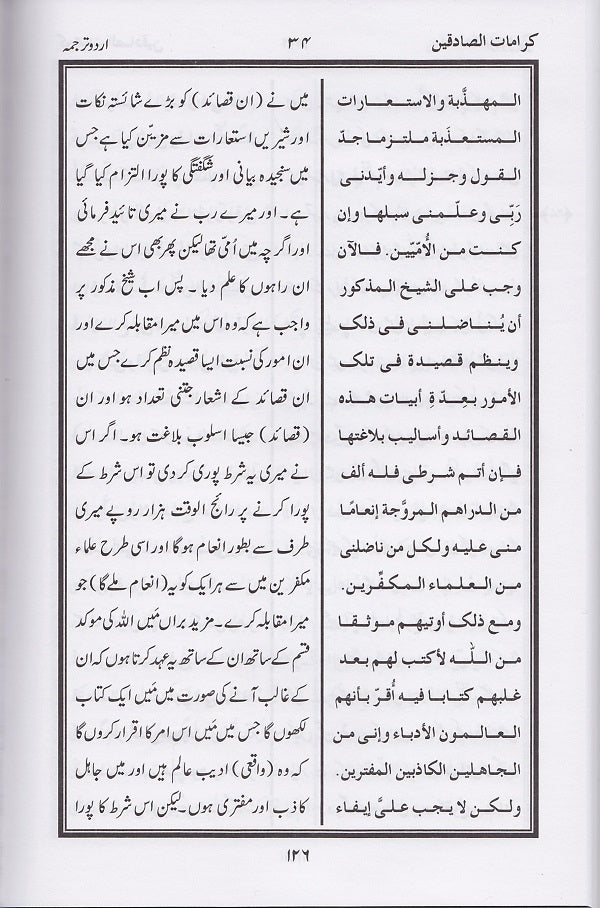 كرامات الصادقين
۳۴
اردو ترجمہ
المهذَّبة والاستعارات
المستعذَبة ملتزما جدّ
القول وجزله وأيّدنى
رَبّى وعلّمنى سبلها وإن
كنت من الأُمّيّين. فالآن
وجب على الشيخ المذكور
أن يُناضلنى فى ذلک
وينظم قصيدة فى تلک
الأمور بعِدّةِ أبيات هذه
القصائد وأساليب بلاغتها
فإن أتم شرطى فله ألف
من الدراهم المروَّجة إنعامًا
منى عليه ولكل من ناضلنى
من العلماء المكفّرين.
ومع ذلک أوتيهم موثقا
من اللّٰه لأكتب لهم بعد
غلبهم كتابا فيه أُقرّ بأنهم
العالمون الأدباء وإنى من
الجاهلين الكاذبين المفترين.
ولكن لا يجب علىَّ إيفاء
میں نے (ان قصائد) کو بڑے شائستہ نکات
اور شیریں استعارات سے مزیّن کیا ہے جس
میں سنجیدہ بیانی اور شگفتگی کا پورا التزام کیا گیا
ہے۔ اور میرے رب نے میری تائید فرمائی
اور اگر چہ میں اُمّی تھا لیکن پھر بھی اس نے مجھے
ان راہوں کا علم دیا ۔ پس اب شیخ مذکور پر
واجب ہے کہ وہ اس میں میرا مقابلہ کرے اور
ان امور کی نسبت ایسا قصیدہ نظم کرے جس میں
ان قصائد کے اشعار جتنی تعداد ہو اور ان
(قصائد) جیسا اسلوب بلاغت ہو۔ اگر اس
نے میری یہ شرط پوری کر دی تو اس شرط کے
پورا کرنے پر رائج الوقت ہزار روپے میری
طرف سے بطور انعام ہوگا اور اسی طرح علماء
مکفرین میں سے ہر ایک کو یہ (انعام ملے گا) جو
میرا مقابلہ کرے۔ مزید براں مَیں اللہ کی موکد
قسم کے ساتھ ان کے ساتھ یہ عہد کرتا ہوں کہ ان
کے غالب آنے کی صورت میں مَیں ایک کتاب
لکھوں گا جس میں مَیں اس امر کا اقرار کروں گا
کہ وہ (واقعی) ادیب عالم ہیں اور میں جاہل
کاذب اور مفتری ہوں۔ لیکن اس شرط کا پورا
۱۲۶